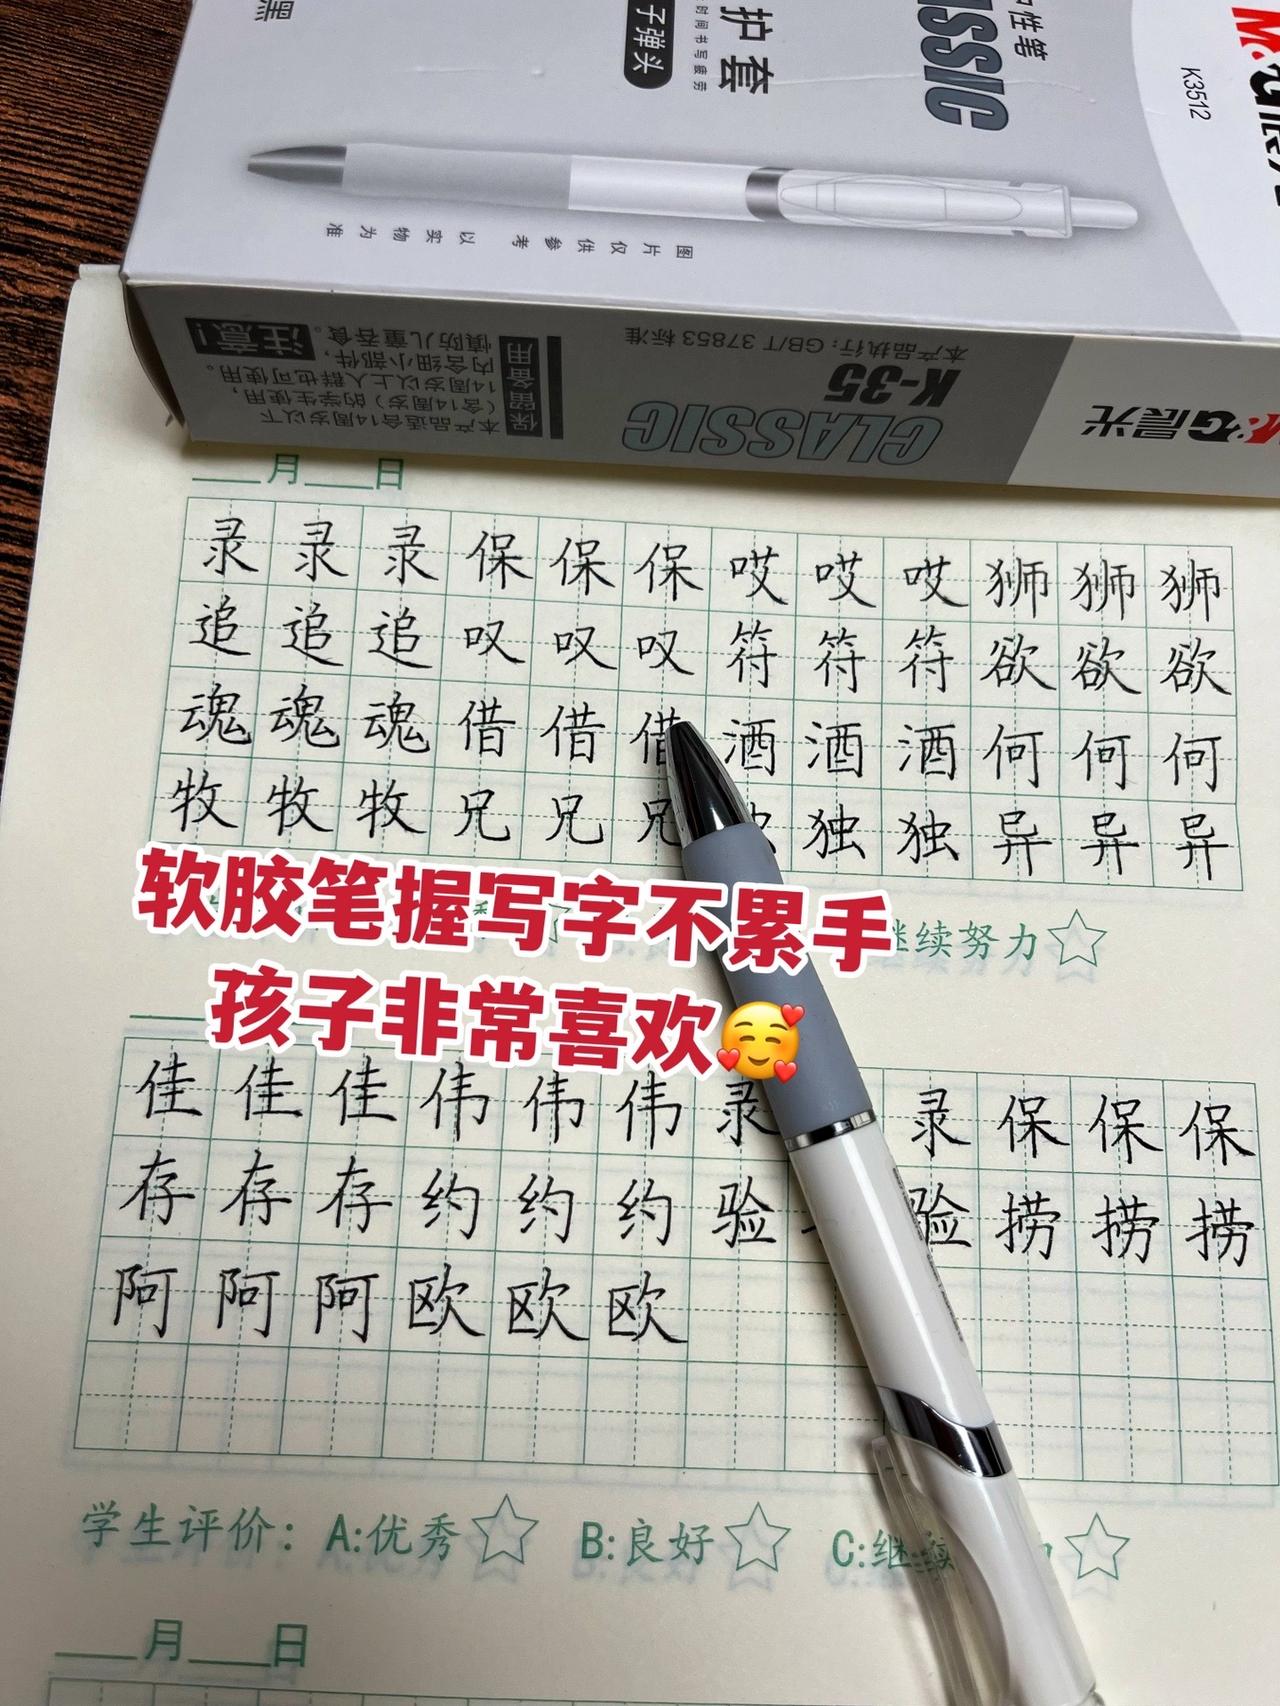 黑
护套
时间书写疲劳
子弹头
CLASSIC
性笔
K3512
图片仅供参考 以实物为准
注意!
本产品适合14周岁以下
(含14周岁)的学生使用,
14周岁以上人群也可使用。
内含细小部件,
慎防儿童吞食。
保留备用
本产品执行:GB/T 37853 标准
K-35
CLASSIC
M&G晨光
月 日
录 录 录 保 保 保 哎 哎 哎 狮 狮 狮
追 追 追 叹 叹 叹 符 符 符 欲 欲 欲
魂 魂 魂 借 借 借 酒 酒 酒 何 何 何
牧 牧 牧 兄 兄 兄 独 独 异 异 异
软胶笔握写字不累手
继续努力
孩子非常喜欢🥰
佳 佳 佳 伟 伟 伟 录 录 保 保 保
存 存 存 约 约 约 验 验 捞 捞 捞
阿 阿 阿 欧 欧 欧
学生评价: A:优秀 B:良好 C:继续
月 日